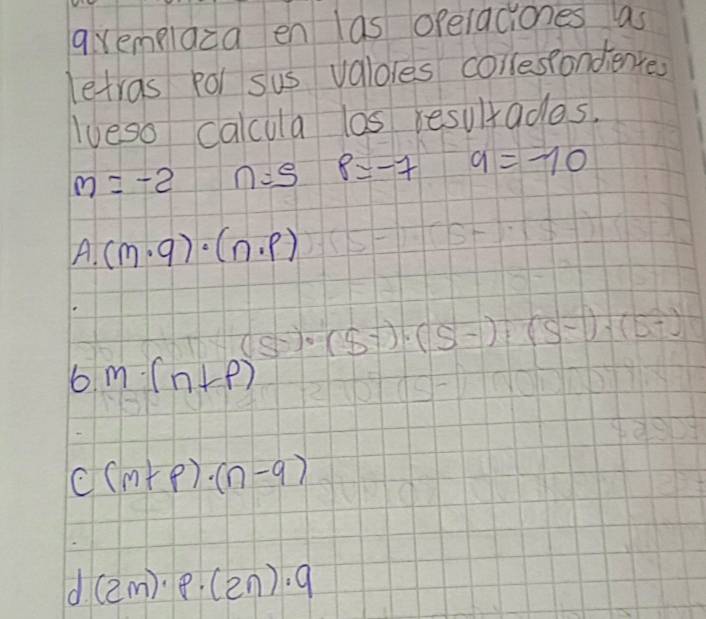 9 remplaza en las operaciones las
letras por sus valores correspondientes
luego calcula los resultados.
m = -2 n = 5 p = -7 q = -10
A. (m·q)·(n·p)
b. m·(n+p)
c (m+p)·(n-q)
d. (2m)·p·(2n)·q